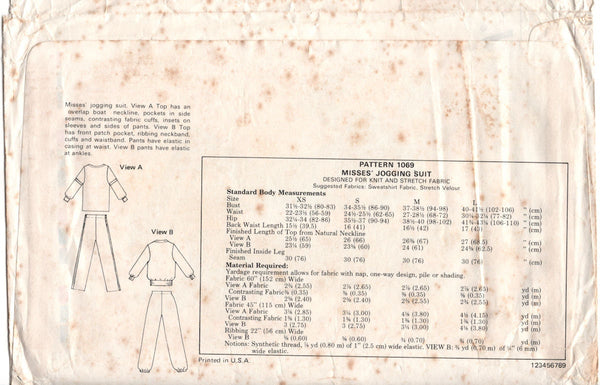 Misses' jogging suit. View A Top has an
overlap boat neckline, pockets in side
seams, contrasting fabric cuffs, insets on
sleeves and sides of pants. View B Top
has front patch pocket, ribbing neckband,
cuffs and waistband. Pants have elastic in
casing at waist. View B pants have elastic
at ankles.
View A
View B
PATTERN 1069
MISSES' JOGGING SUIT
DESIGNED FOR KNIT AND STRETCH FABRIC
Suggested Fabrics: Sweatshirt Fabric, Stretch Velour
Standard Body Measurements
Size XS S M L
Bust 31½-32½ (80-83) 34-35½ (86-90) 37-38½ (94-98) 40-41½ (102-106) " (cm)
Waist 22-23½ (56-59) 24½-25½ (62-65) 27-28½ (68-72) (77-82) " (cm)
Hip 32½-34 (82-86) 35½-37 (90-94) 38½-40 (98-102) (106-110) " (cm)
Back Waist Length 15½ (39.5) 16 (41) 16½ (42) 17 (43) " (cm)
Finished Length of Top from Natural Neckline
View A 25½ (65) 26 (66) (67) 27 (68.5) " (cm)
View B 23½ (59) 23¾ (60) 24 (61) (62.5) " (cm)
Finished Inside Leg
Seam 30 (76) 30 (76) 30 (76) 30 (76) " (cm)
Material Required:
Yardage requirement allows for fabric with nap, one-way design, pile or shading.
Fabric 60" (152 cm) Wide
View A Fabric (2.55) (2.65) (2.65) (2.65) yd (m)
Contrasting Fabric (0.35) (0.35) (0.35) (0.35) yd (m)
View B (2.40) (2.40) (2.55) (2.55) yd (m)
Fabric 45" (115 cm) Wide
View A Fabric (2.85) (3.55) (3.80) (4.15) yd (m)
Contrasting Fabric (1.30) (1.30) (1.30) (1.30) yd (m)
View B 3 (2.75) 3 (2.75) (3.80) (3.80) yd (m)
Ribbing 22" (56 cm) Wide
View B (0.60) (0.60) (0.70) (0.70) yd (m)
Notions: Synthetic thread, ⅞ yd (0.80 m) of 1" (2.5 cm) wide elastic. VIEW B: ¾ yd (0.70 m) of ¼" (6 mm)
wide elastic.
Printed in U.S.A.
123456789